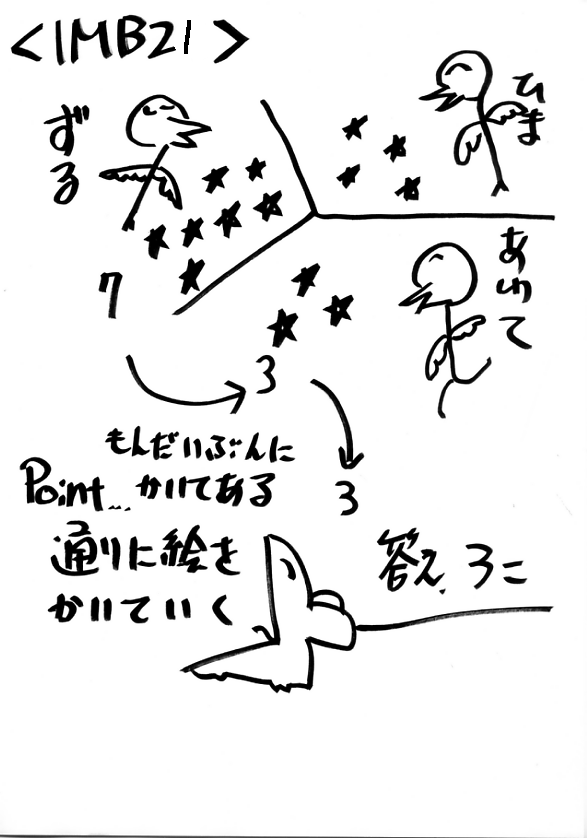 <1MB21>
ずる
ひま
あわて
7
3
3
もんだいぶんに
Point... かいてある
通りに絵を
かいていく
答え. 3こ